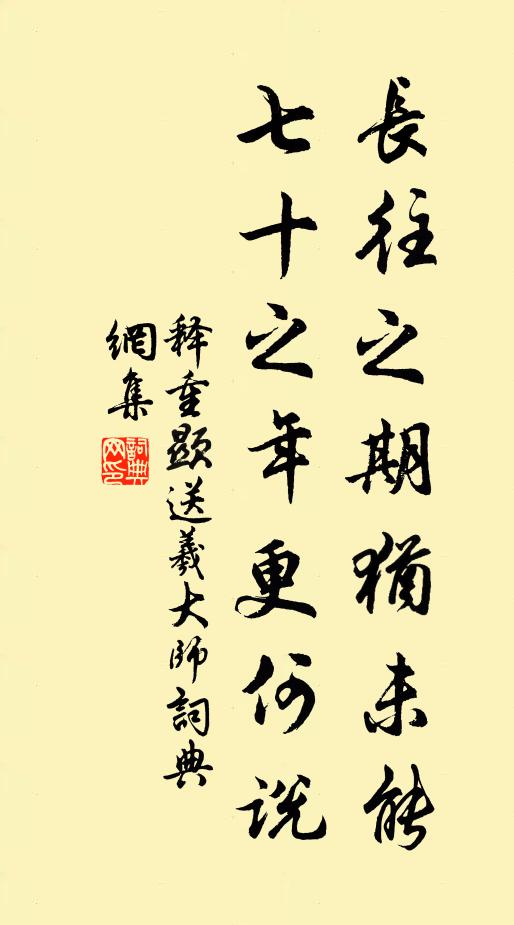 長往之期猶未能
七十之年更何說
释重顯送羲大师詞典
網集
詞典
网印